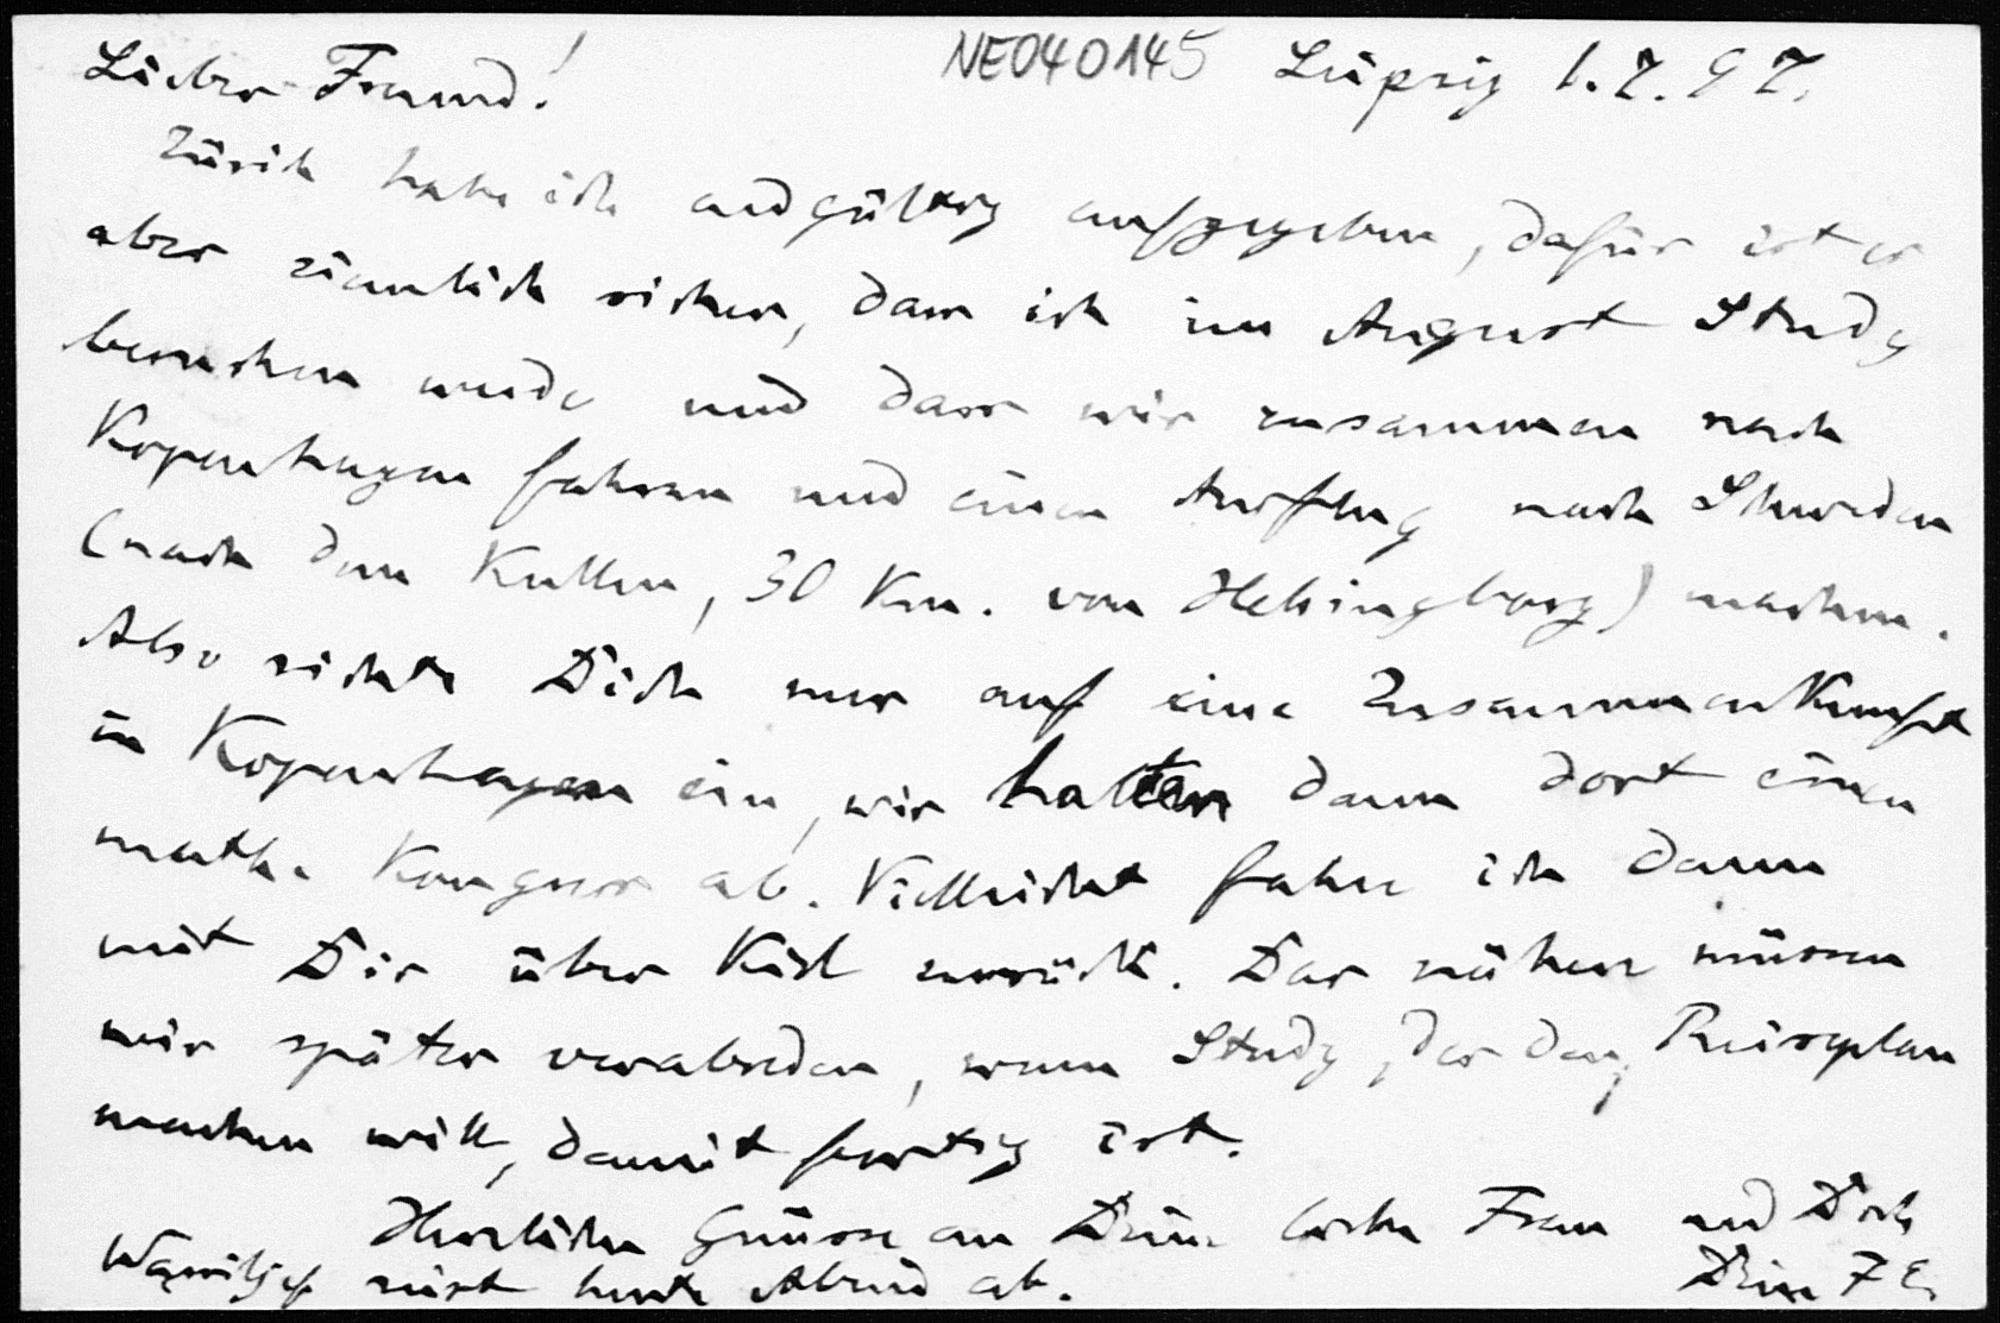 NE040145 Leipzig 1.7.97.
Lieber Freund!
Zürich habe ich endgültig aufgegeben, dafür ist es
aber ziemlich sicher, dass ich im August Study
besuchen werde und dass wir zusammen nach
Kopenhagen fahren und einen Ausflug nach Schweden
(nach dem Kullen, 30 Km. von Helsingborg) machen.
Also richte Dich nur auf eine Zusammenkunft
in Kopenhagen ein, wir halten dann dort einen
math. Kongress ab. Vielleicht fahre ich dann
mit Dir über Kiel zurück. Das nähere müssen
wir später verabreden, wenn Study, der den Reiseplan
machen will, damit fertig ist.
Herzliche Grüsse an Deine liebe Frau und Dich
Dein F E.
Wassiljef reist heute Abend ab.